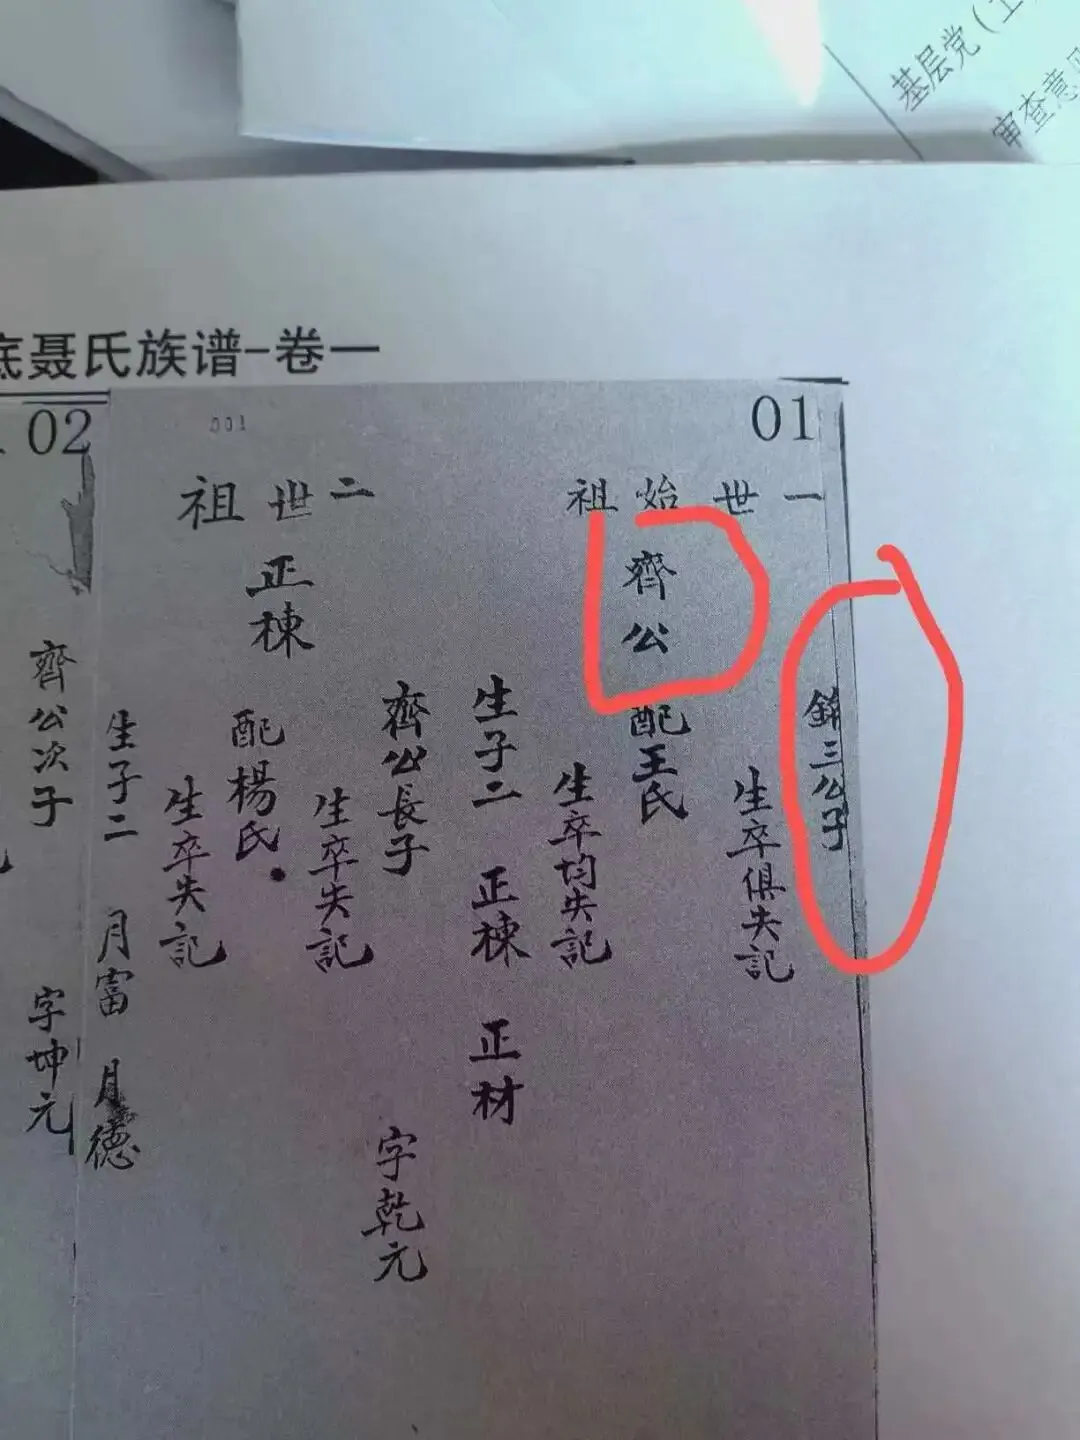 基层党（工
审查意见
底聂氏族谱-卷一
01
三公子
一世始祖
生卒俱失記
齊公
配王氏
生卒均失記
生子二 正棟 正材
001
二世祖
齊公長子 字乾元
生卒失記
正棟
配楊氏
生卒失記
生子二 月富 月德
02
齊公次子 字坤元